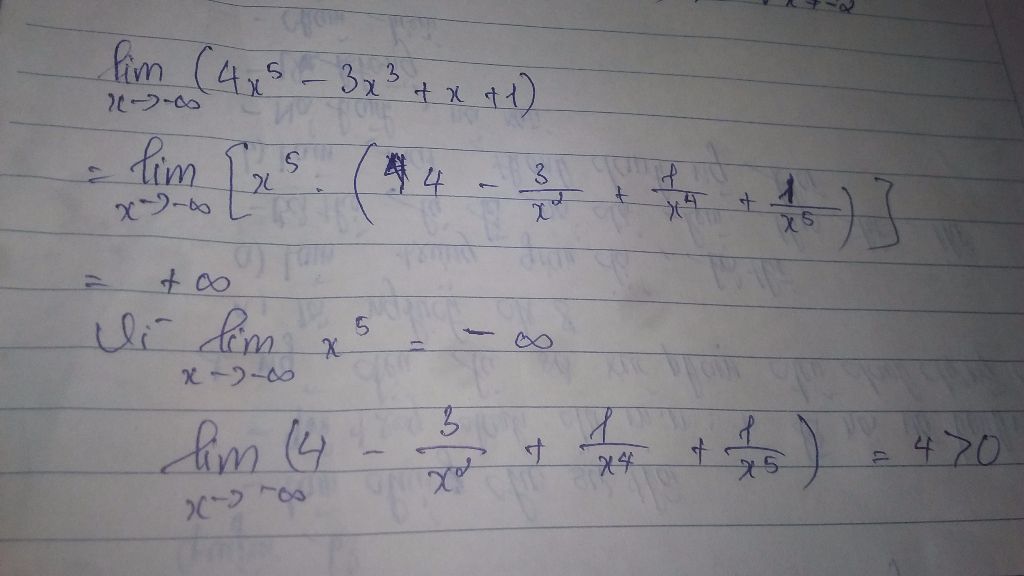 lim x→-∞ (4x⁵ - 3x³ + x + 1)
= lim x→-∞ [x⁵ . (4 - 3/x² + 1/x⁴ + 1/x⁵)]
= +∞
Vì lim x→-∞ x⁵ = -∞
lim x→-∞ (4 - 3/x² + 1/x⁴ + 1/x⁵) = 4>0